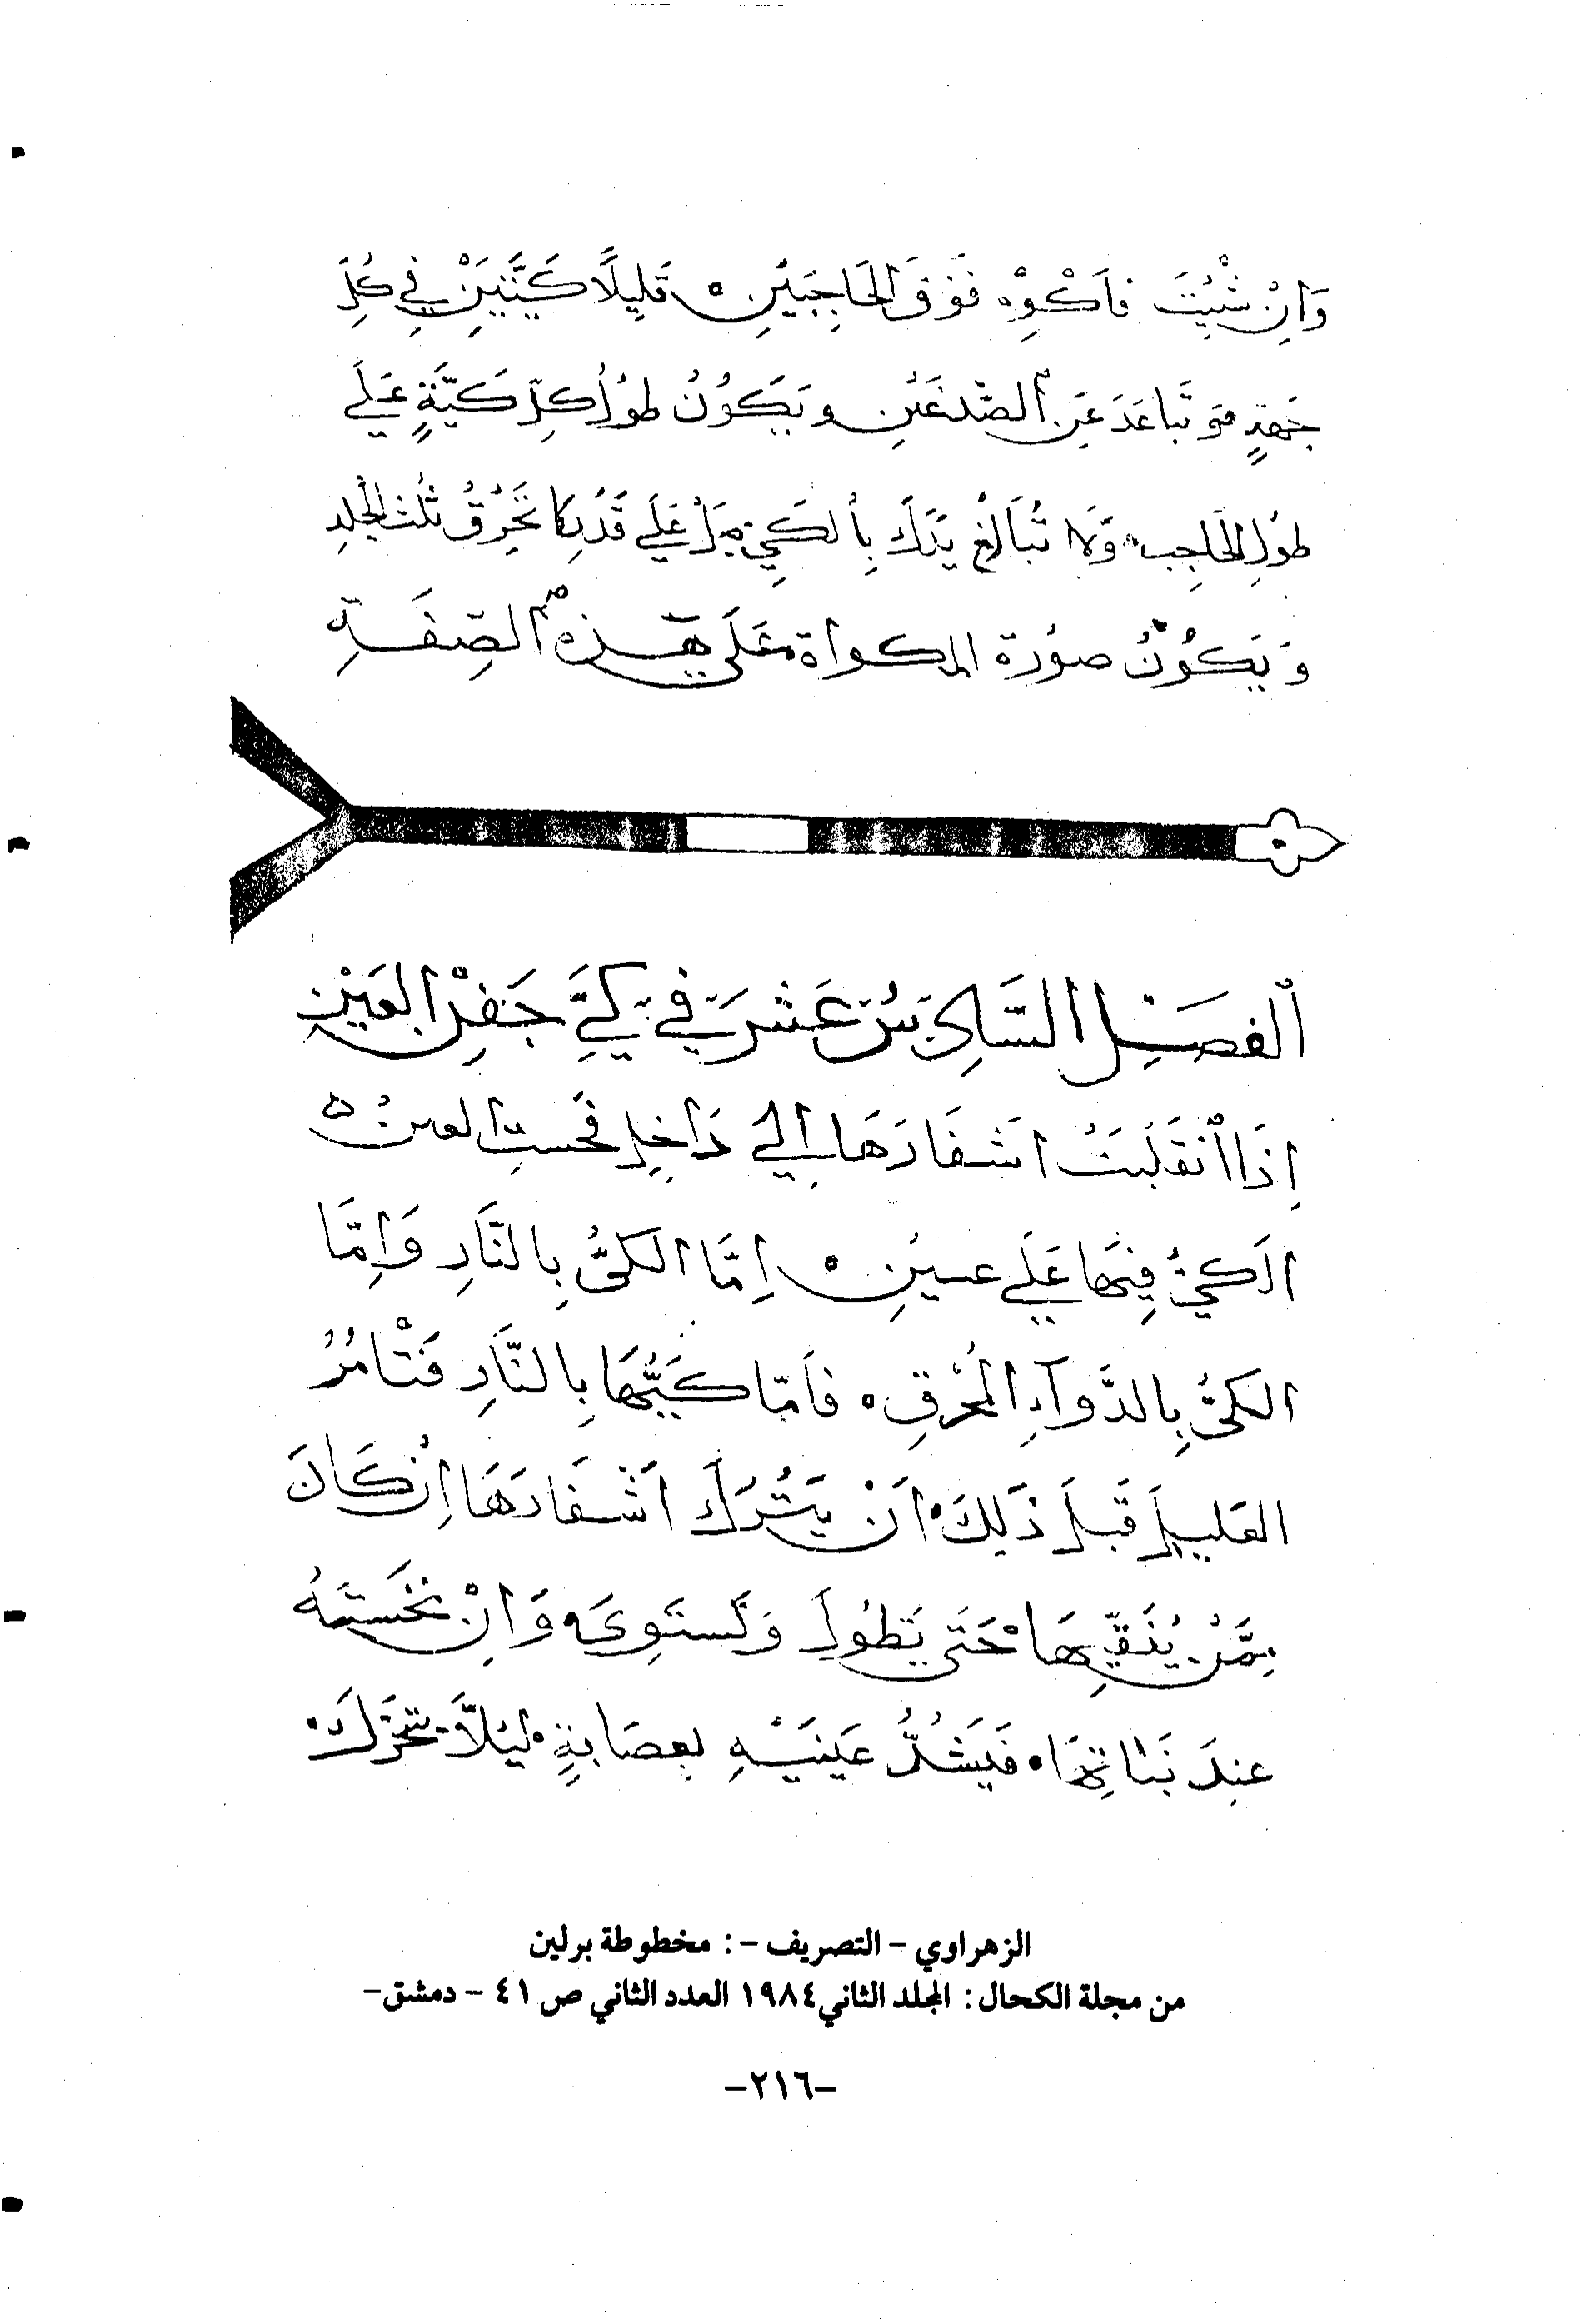 وَاِنْ شْئِتَ فاَكْوِهْ فَوْقَ الحَاجِبَيْنِ ه قَلِيلًا كَيَّتَيْنِ فِي كُلِّ
جَهةٍ وَتَباعَدَ عَنِ الصّدغَيْنِ ويَكُونُ طوُلُ كِلّ كَيّةٍ عَلَي
طوُلِ الحَاجِبِ وَلا تُبَالِغْ يَدَكَ بِالكَيِّ بَلْ عَلَي قَدْرِ مَا تَحْرُقُ ثُلْثَ الجْلدِ
وَيَكُونُ صوُرَة المكواة عَلَي هَذِهِ الصِفَةِ
الفصَلُ السَّادِسُ عَشَرَ في كَيِّ جَفنِ العَيْنِ
اِذَا انقَلبَتْ اشفَارَهَا اِلي دَاخِلِ فَنخستِ العين ه
الَكيُّ فِيهَا عَلَي ضربينِ ه اِمَّا الكيُّ بِالنَّارِ وَاِمَّا
الكيُّ بِالدَّوآءِ المُحْرِقِ ه فاَمّا كَيُّهَا بِالنَّارِ فَتْامُرُ
العَليلَ قَبلَ ذَلِكَ اَنْ يَتْرُكَ اَشْفَارَهَا اِنْ كَانَ
مِمَّنْ يُنَقّيِهَا حَتَي تَطوُلَ وَتَستَوِي ه وَاِنْ نَخَستهُ
عِندَ نَباتِهَا ه فَيَشُدُّ عَينَيْهِ بِعِصَابَةٍ لِيَلّا تتحَرَّكَ
الزهراوي - التصريف -: مخطوطة برلين
من مجلة الكحال: المجلد الثاني ١٩٨٤ العدد الثاني ص ٤١ - دمشق-
-٢١٦-